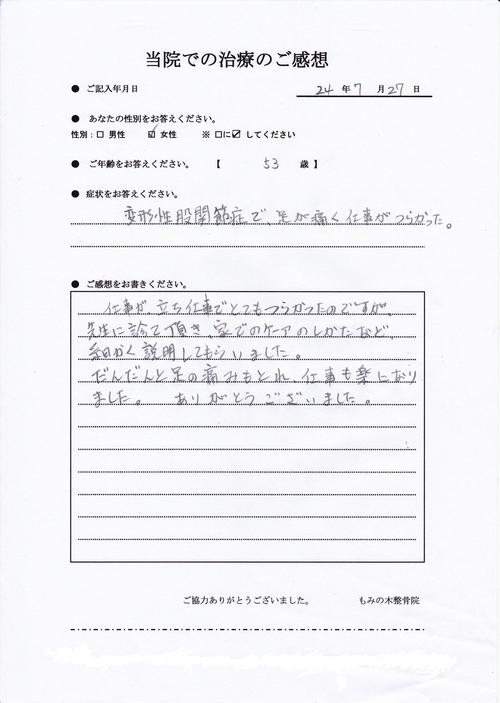 当院での治療のご感想
● ご記入年月日 24 年 7 月 27 日
● あなたの性別をお答えください。
性別:□ 男性 ☑ 女性 ※ □に☑ してください
● ご年齢をお答えください。 【 53 歳 】
● 症状をお答えください。
変形性股関節症で、足が痛く仕事がつらかった。
● ご感想をお書きください。
仕事が立ち仕事でとてもつらかったのですが、
先生に診て頂き、家でのケアのしかたなど、
細かく説明してもらいました。
だんだんと足の痛みもとれ、仕事も楽になり
ました。 ありがとうございました。
ご協力ありがとうございました。 もみの木整骨院